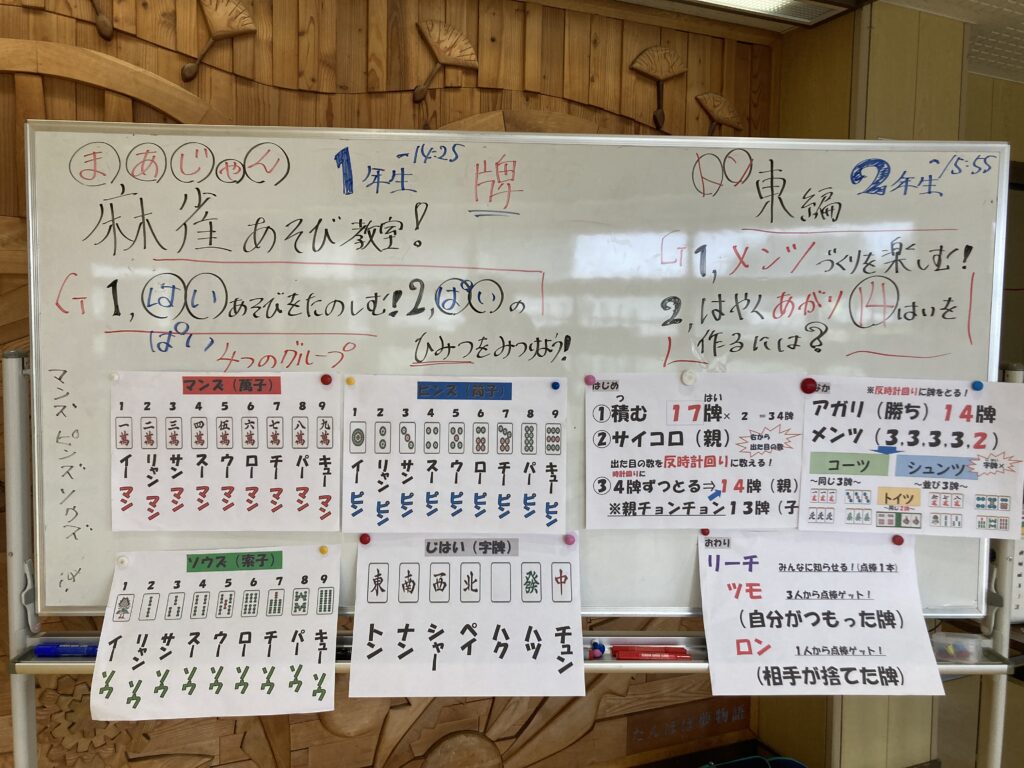 まあじゃん
1年生 -14:25
牌
麻雀あそび教室!
1, はいあそびをたのしむ! 2, ぱいの
ぱい
4つのグループ
ひみつをみつけよう!
トン
東編
2年生 ~15:55
1, メンツづくりを楽しむ!
2, はやくあがり14はいを
作るには?
マンズ, ピンズ ソウズ
マンズ(萬子)
1 2 3 4 5 6 7 8 9
一萬 二萬 三萬 四萬 伍萬 六萬 七萬 八萬 九萬
イー リャン サン スー ウー ロー チー パー キュー
マン マン マン マン マン マン マン マン マン
ピンズ(筒子)
1 2 3 4 5 6 7 8 9
イー リャン サン スー ウー ロー チー パー キュー
ピン ピン ピン ピン ピン ピン ピン ピン ピン
ソウズ(索子)
1 2 3 4 5 6 7 8 9
イー リャン サン スー ウー ロー チー パー キュー
ソウ ソウ ソウ ソウ ソウ ソウ ソウ ソウ ソウ
じはい(字牌)
東 南 西 北 發 中
トン ナン シャー ペイ ハク ハツ チュン
はじめ
つ はい
①積む 17牌× 2 =34牌
②サイコロ(親)
右から
出た目の数
出た目の数を反時計回りに数える!
時計回りに
③4牌ずつとる⇒14牌(親)
※親チョンチョン 13牌(子
なか
※反時計回りに牌をとる!
アガリ(勝ち)14牌
メンツ(3.3.3.3.2)
字牌×
コーツ シュンツ
~同じ3牌~ ~並び3牌~
トイツ
~同じ2牌~
おわり
リーチ みんなに知らせる!(点棒1本)
ツモ 3人から点棒ゲット!
(自分がつもった牌)
ロン 1人から点棒ゲット!
(相手が捨てた牌)
たんぽぽ夢物語